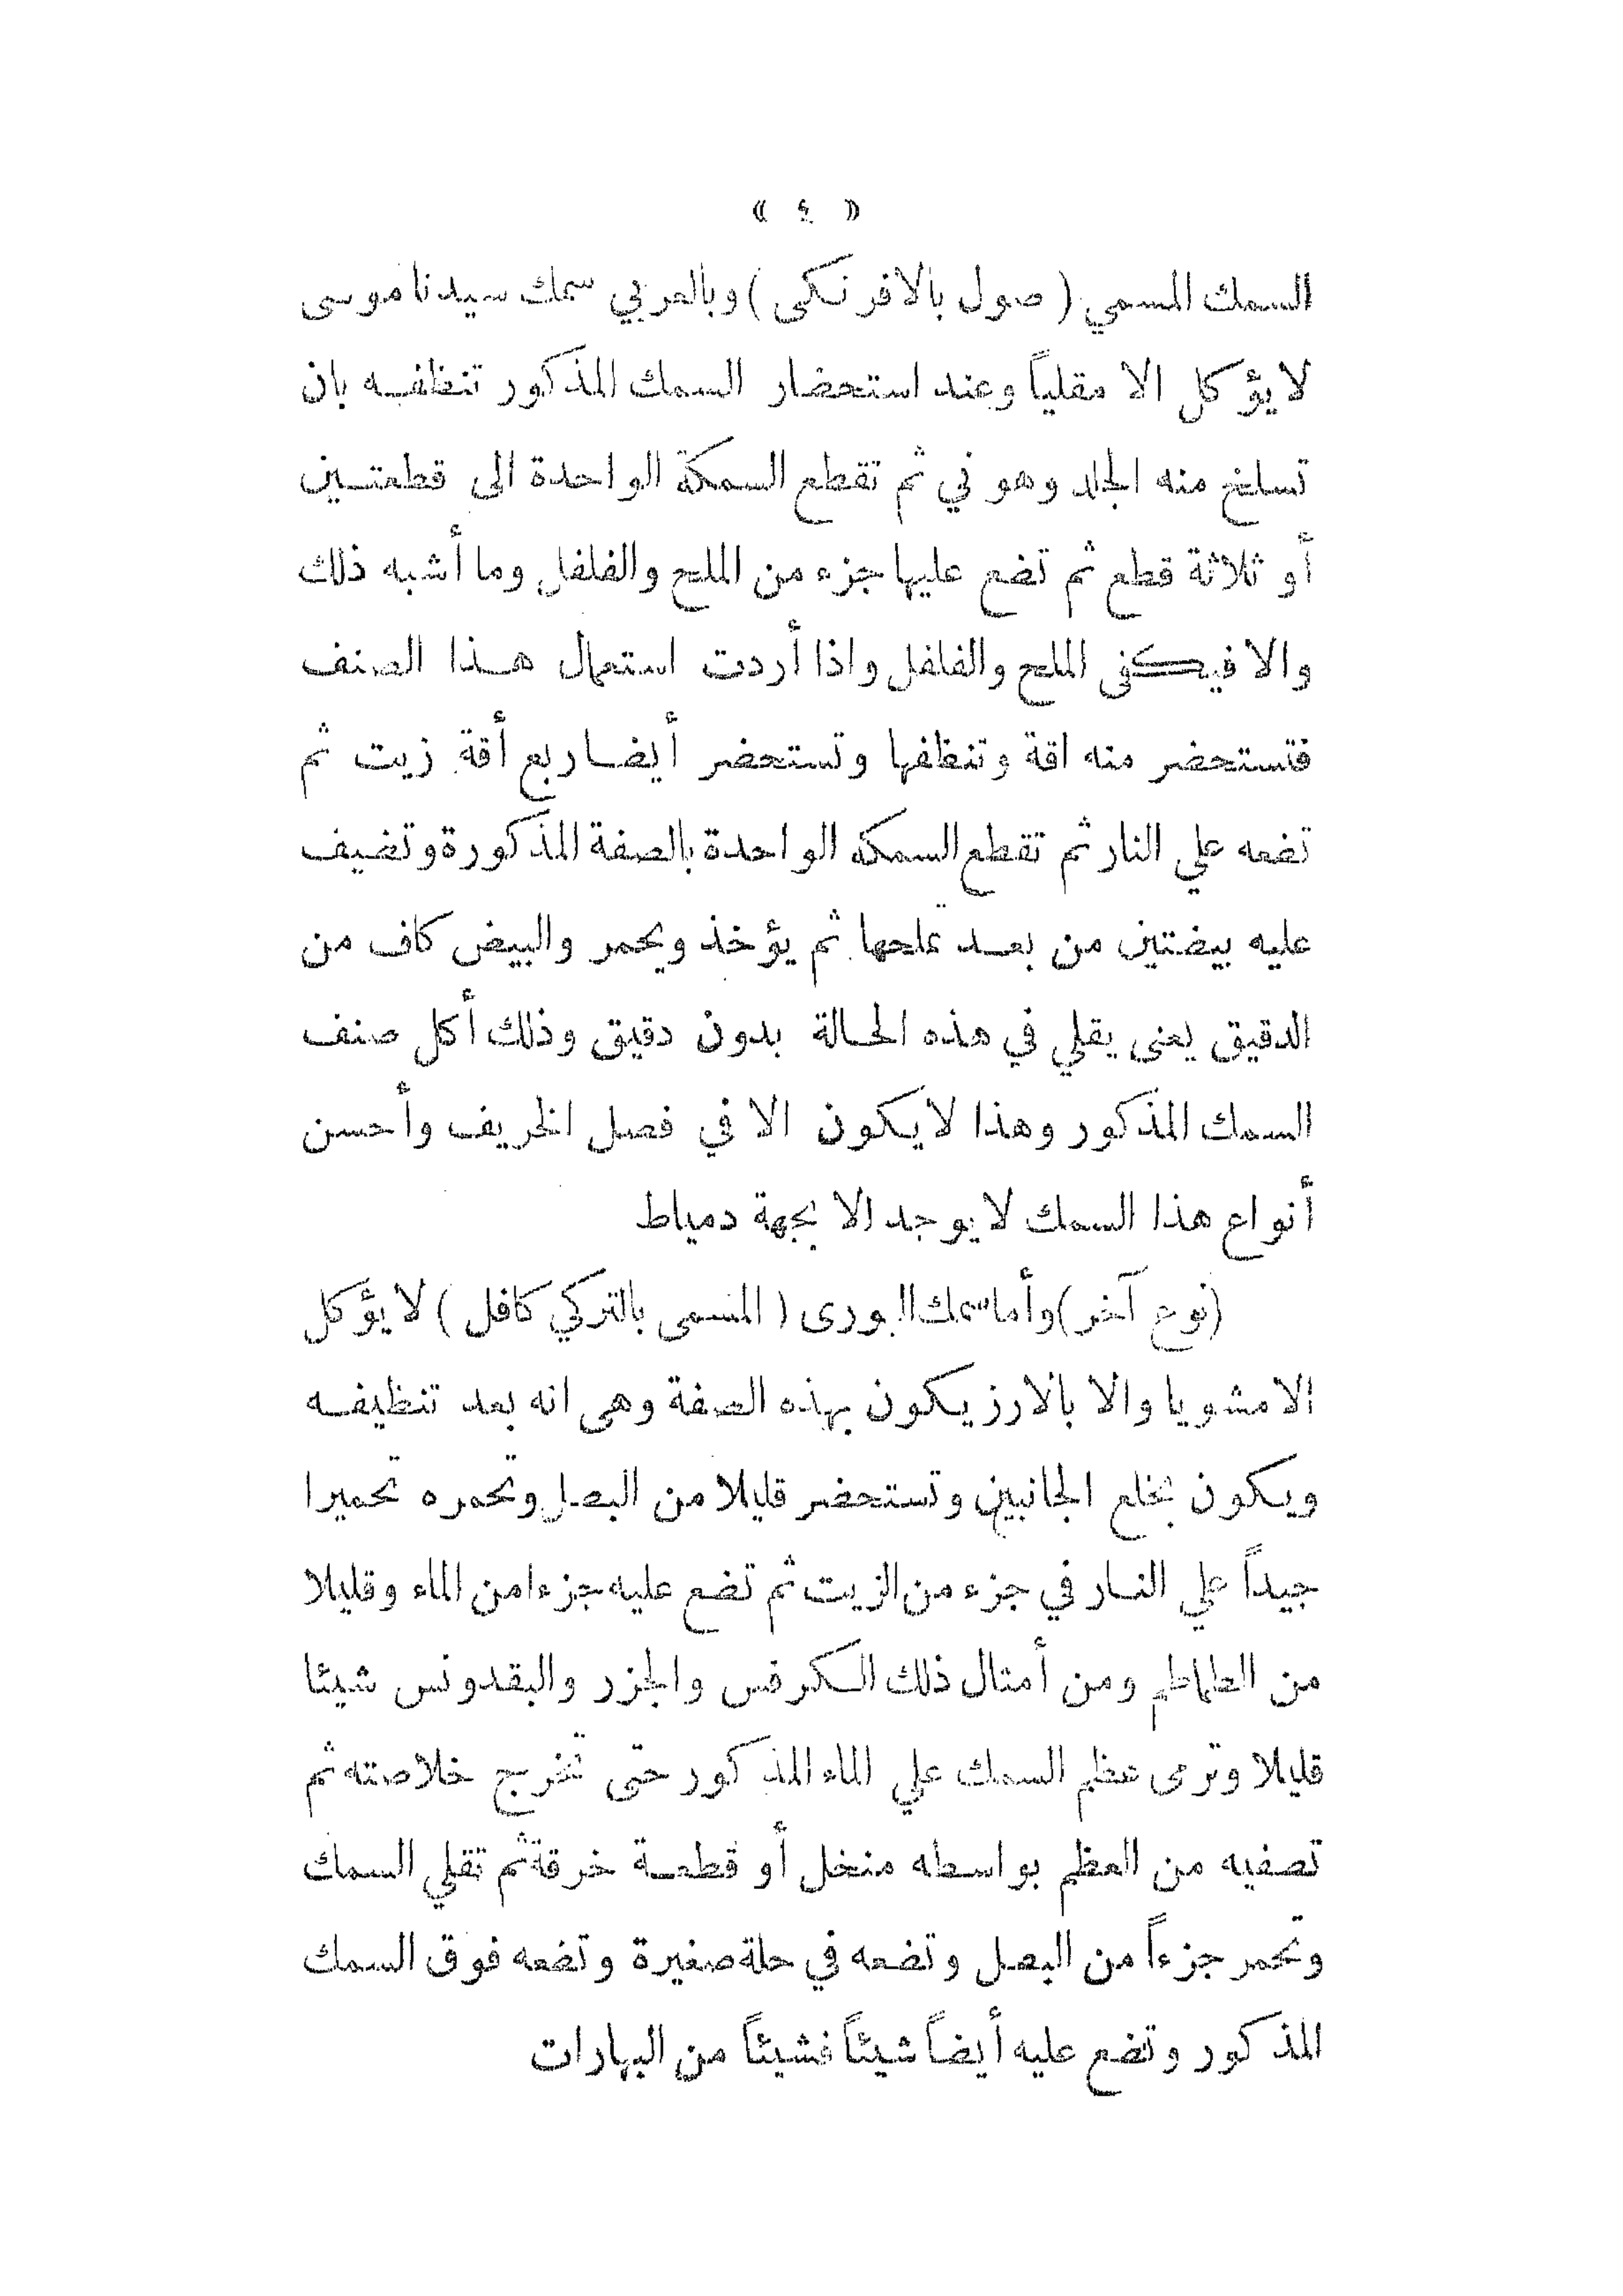 « ٤ »
السمك المسمي ( صول بالافرنكى ) وبالعربي سمك سيدنا موسى
لايؤكل الا مقلياً وعند استحضار السمك المذكور تنظفه بان
تسلخ منه الجلد وهو ني ثم تقطع السمكة الواحدة الى قطعتين
أو ثلاثة قطع ثم تضع عليها جزء من الملح والفلفل وما أشبه ذلك
والا فيكفى الملح والفلفل واذا أردت استعمال هذا الصنف
فتستحضر منه اقة وتنظفها وتستحضر أيضا ربع أقة زيت ثم
تضعه علي النار ثم تقطع السمكه الواحدة بالصفة المذكورة وتضيف
عليه بيضتين من بعد تملحها ثم يؤخذ ويحمر والبيض كاف من
الدقيق يعنى يقلي في هذه الحالة بدون دقيق وذلك أكل صنف
السمك المذكور وهذا لايكون الا في فصل الخريف وأحسن
أنواع هذا السمك لايوجد الا بجهة دمياط
(نوع آخر) وأما سمك البورى ( المسمى بالتركي كافل ) لايؤكل
الا مشويا والا بالارز يكون بهذه الصفة وهى انه بعد تنظيفه
ويكون بخلع الجانبين وتستحضر قليلا من البصل وتحمره تحميرا
جيداً علي النار في جزء من الزيت ثم تضع عليه جزءا من الماء وقليلا
من الطماطم ومن أمتال ذلك الكرفس والجزر والبقدونس شيئا
قليلا وترمى عظم السمك علي الماء المذكور حتى تخرج خلاصته ثم
تصفيه من العظم بواسطه منخل أو قطعة خرقة ثم تقلي السمك
وتحمر جزءاً من البصل وتضعه في حلة صغيرة وتضعه فوق السمك
المذكور وتضع عليه أيضاً شيئاً فشيئاً من البهارات